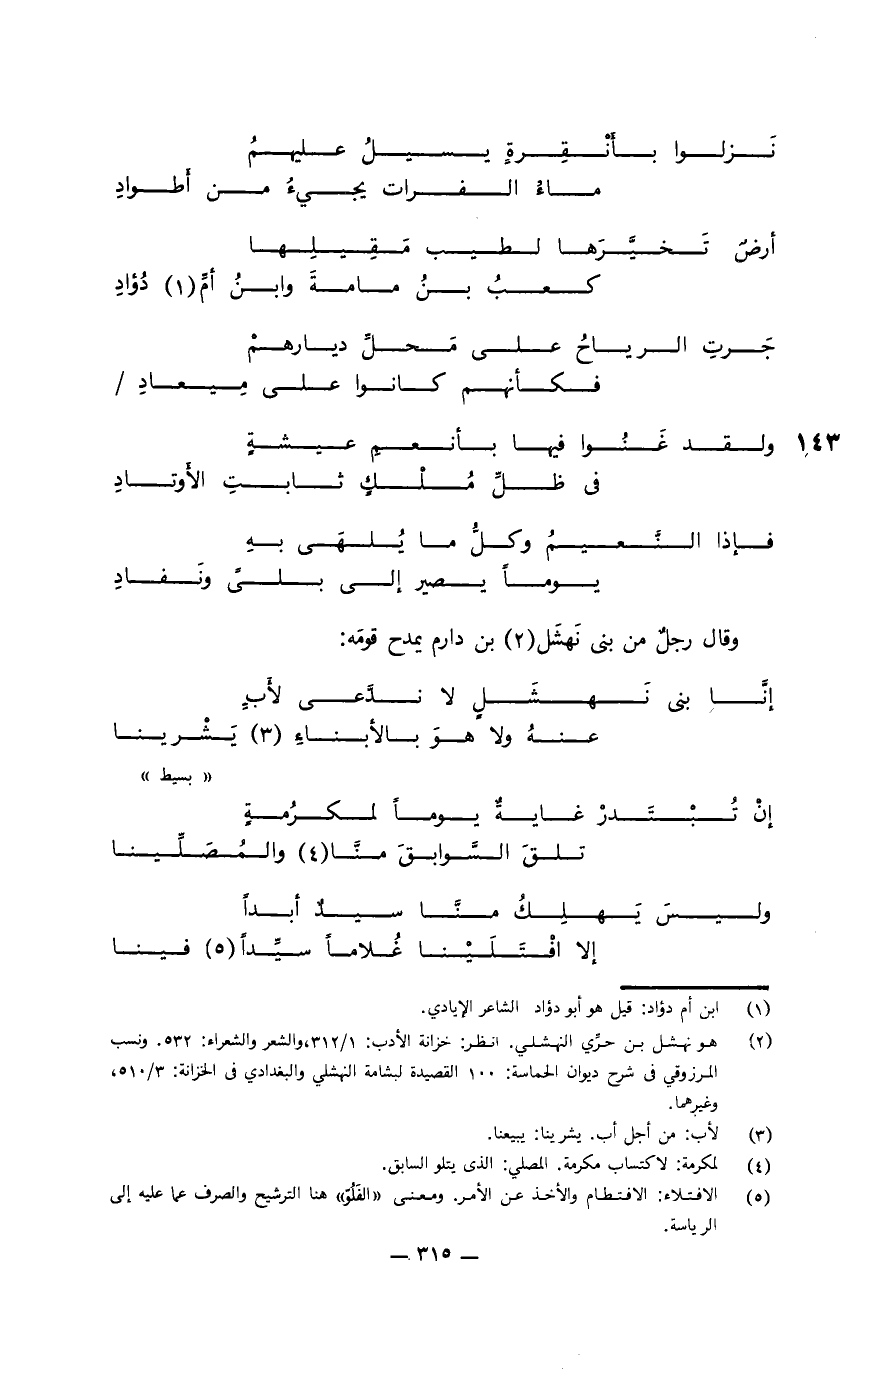 نَزلوا بأنْقِرةٍ يسيلُ عليهمُ
ماءُ الفرات يجيءُ من أَطوادِ
أرضٌ تَخيَّرَها لطيب مَقِيلِها
كعبُ بنُ مامةَ وابنُ أمِّ(١) دُؤادِ
جَرتِ الرياحُ على مَحلِّ ديارهمْ
فكأنهم كانوا على مِيعادِ /
١٤٣ ولقد غَنُوا فيها بأنعمِ عيشةٍ
فى ظلِّ مُلْكٍ ثابتِ الأَوتادِ
فإذا النَّعيمُ وكلُّ ما يُلهَى بهِ
يوماً يصير إلى بلىً ونَفادِ
وقال رجلٌ من بنى نَهشَل(٢) بن دارم يمدح قومَه:
إنَّا بنى نَهشَلٍ لا ندَّعى لأَبٍ
عنهُ ولا هوَ بالأبناءِ (٣) يَشْرينا
« بسيط »
إنْ تُبْتَدرْ غايةٌ يوماً لمكرُمةٍ
تلقَ السَّوابقَ منَّا(٤) والمُصَلِّينا
وليسَ يَهلِكُ منَّا سيدٌ أبداً
إلا افْتَلَيْنا غُلاماً سيِّداً(٥) فينا
(١) ابن أم دؤاد: قيل هو أبو دؤاد الشاعر الإيادي.
(٢) هو نهشل بن حرِّي النهشلي. انظر: خزانة الأدب: ٣١٢/١،والشعر والشعراء: ٥٣٢. ونسب
المرزوقي فى شرح ديوان الحماسة: ١٠٠ القصيدة لبشامة النهشلي والبغدادي فى الخزانة: ٥١٠/٣،
وغيرهما.
(٣) لأب: من أجل أب. يشرينا: يبيعنا.
(٤) لمكرمة: لاكتساب مكرمة. المصلي: الذى يتلو السابق.
(٥) الافتلاء: الافتطام والأخذ عن الأمر. ومعنى «الفَلُوّ» هنا الترشيح والصرف عما عليه إلى
الرياسة.
— ٣١٥ —